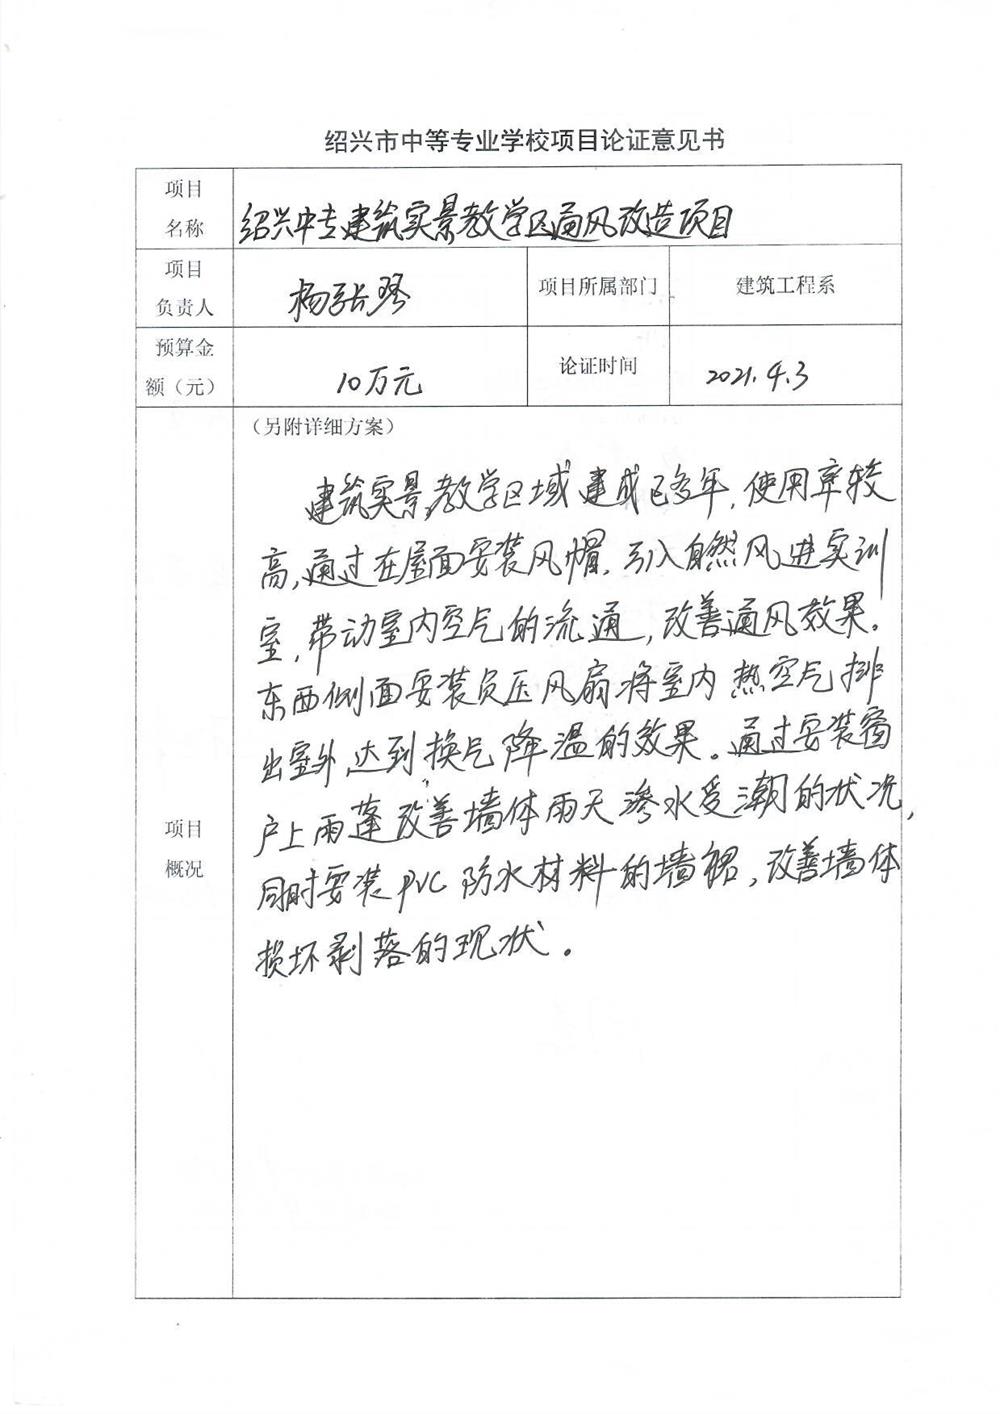 绍兴市中等专业学校项目论证意见书
项目
名称
绍兴中专建筑实景教学区通风改造项目
项目
负责人
杨张琴
项目所属部门
建筑工程系
预算金
额（元）
10万元
论证时间
2021.4.3
项目
概况
（另附详细方案）
建筑实景教学区域建成已多年，使用率较
高，通过在屋面安装风帽，引入自然风进实训
室，带动室内空气的流通，改善通风效果。
东西侧面安装负压风扇将室内热空气排
出室外，达到换气降温的效果。通过安装窗
户上雨蓬改善墙体雨天渗水受潮的状况，
同时安装PVC防水材料的墙裙，改善墙体
损坏剥落的现状。